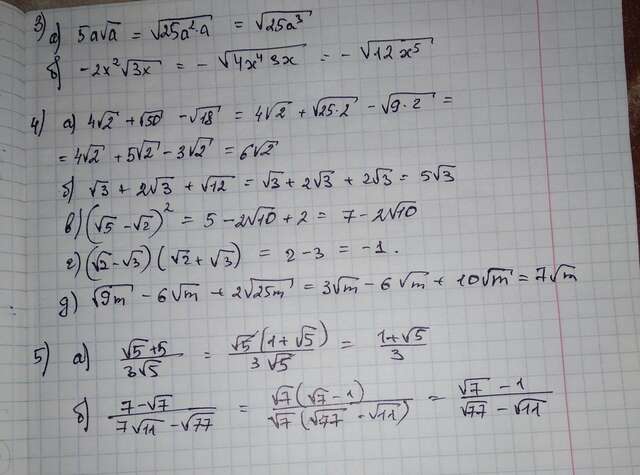 3) а) 5a√a = √25a²·a = √25a³
б) -2x²√3x = -√4x⁴ 3x = -√12x⁵
4) а) 4√2 + √50 - √18 = 4√2 + √25·2 - √9·2 =
= 4√2 + 5√2 - 3√2 = 6√2
б) √3 + 2√3 + √12 = √3 + 2√3 + 2√3 = 5√3
в) (√5 - √2)² = 5 - 2√10 + 2 = 7 - 2√10
г) (√2 - √3) (√2 + √3) = 2 - 3 = -1.
д) √9m - 6√m + 2√25m = 3√m - 6√m + 10√m = 7√m
5) а) (√5 + 5)/(3√5) = (√5(1 + √5))/(3√5) = (1 + √5)/3
б) (7 - √7)/(7√11 - √77) = (√7(√7 - 1))/(√7(√77 - √11)) = (√7 - 1)/(√77 - √11)